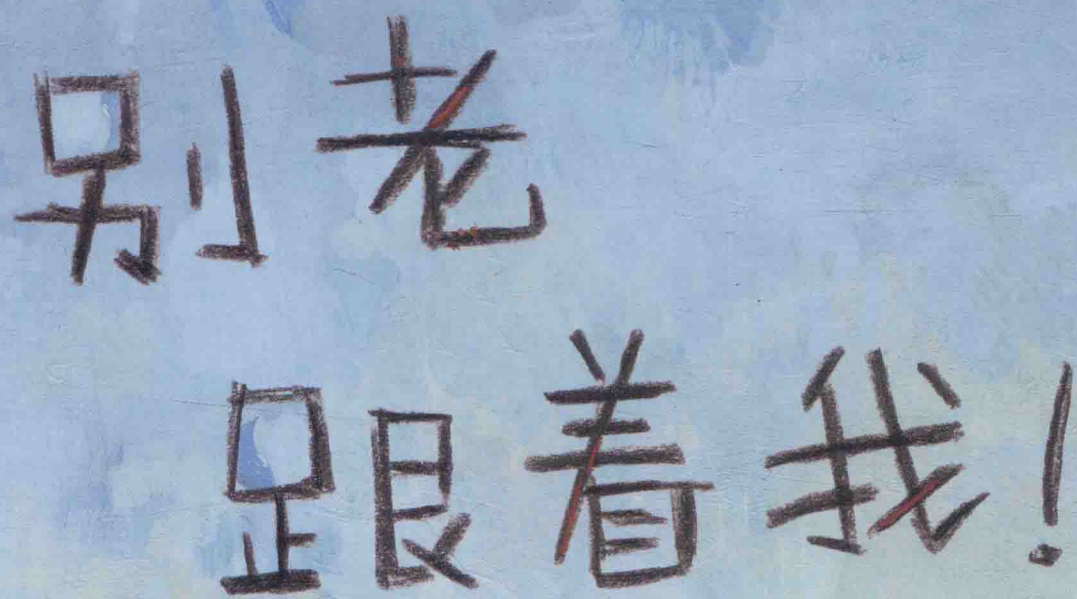 别老
跟着我！